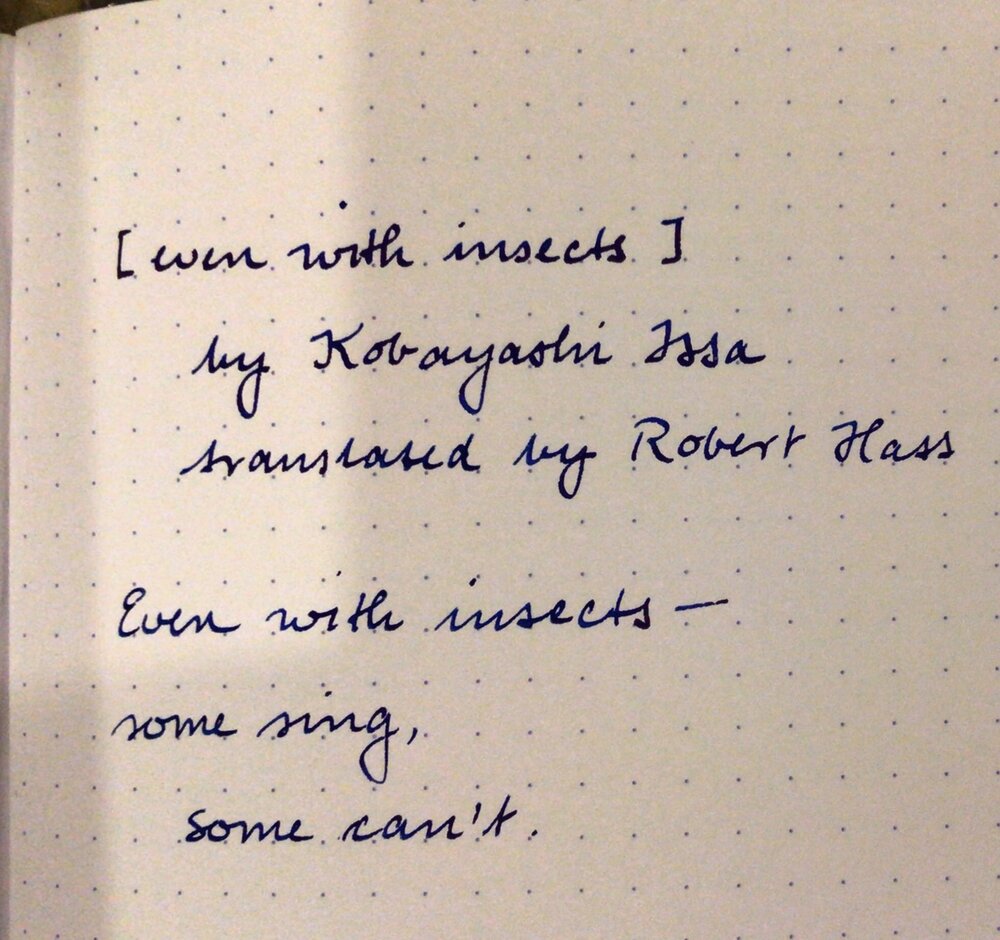 [even with insects]
by Kobayashi Issa
translated by Robert Hass
Even with insects—
some sing,
some can't.